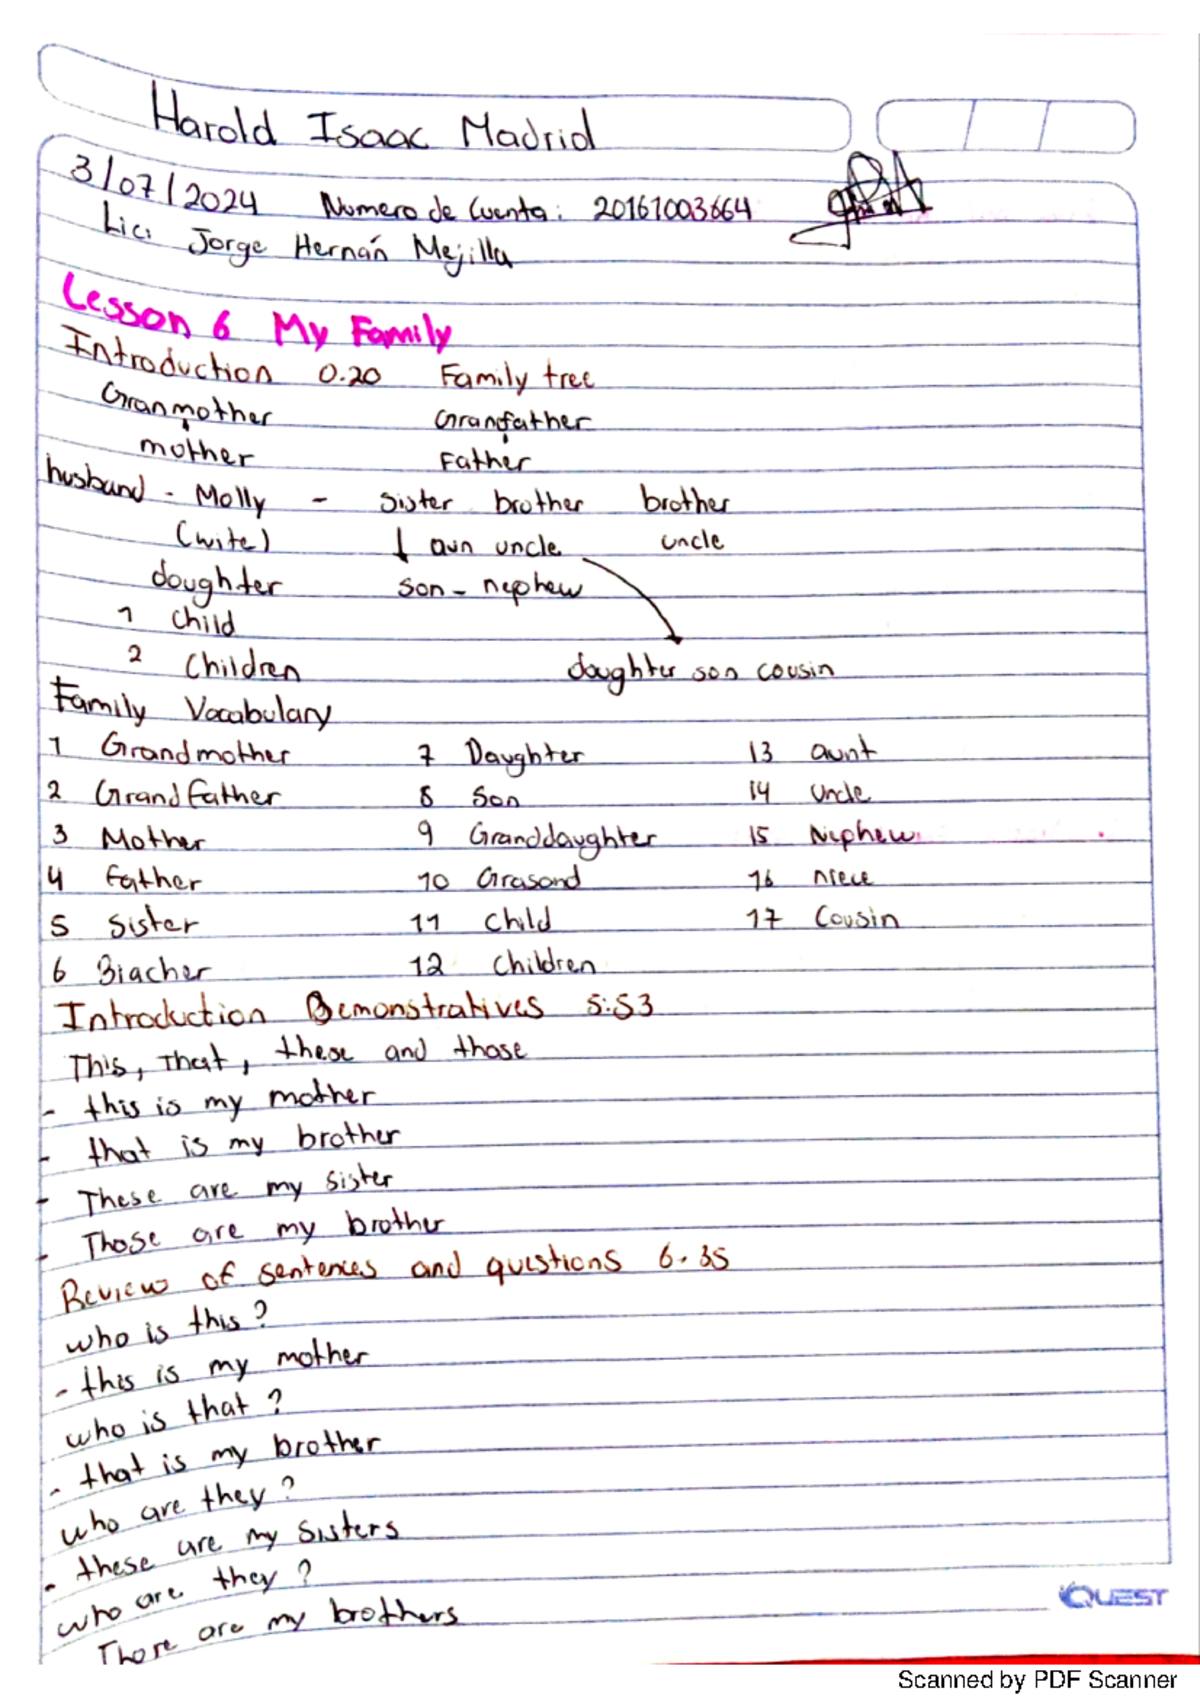 Harold Isaac Madrid
3/07/2024 Numero de Cuenta: 20161003664
Lic: Jorge Hernán Mejilla
Lesson 6 My Family
Introduction 0.20 Family tree
Granmother Granfather
mother Father
husband - Molly - sister brother brother
(wite) ↓ aun uncle uncle
doughter son - nephew
1 Child
2 Children doughter son cousin
Family Vocabulary
1 Grandmother 7 Daughter 13 aunt
2 Grandfather 8 Son 14 Uncle
3 Mother 9 Granddaughter 15 Nephew
4 Father 10 Grasond 16 niece
5 Sister 11 Child 17 Cousin
6 Biacher 12 Children
Introduction Demonstratives 5:53
This, That, these and those
- this is my mother
- that is my brother
- These are my sister
- Those are my brother
Review of sentences and questions 6.35
who is this?
- this is my mother
who is that?
- that is my brother
who are they?
- these are my sisters
who are they?
Those are my brothers
QUEST
Scanned by PDF Scanner